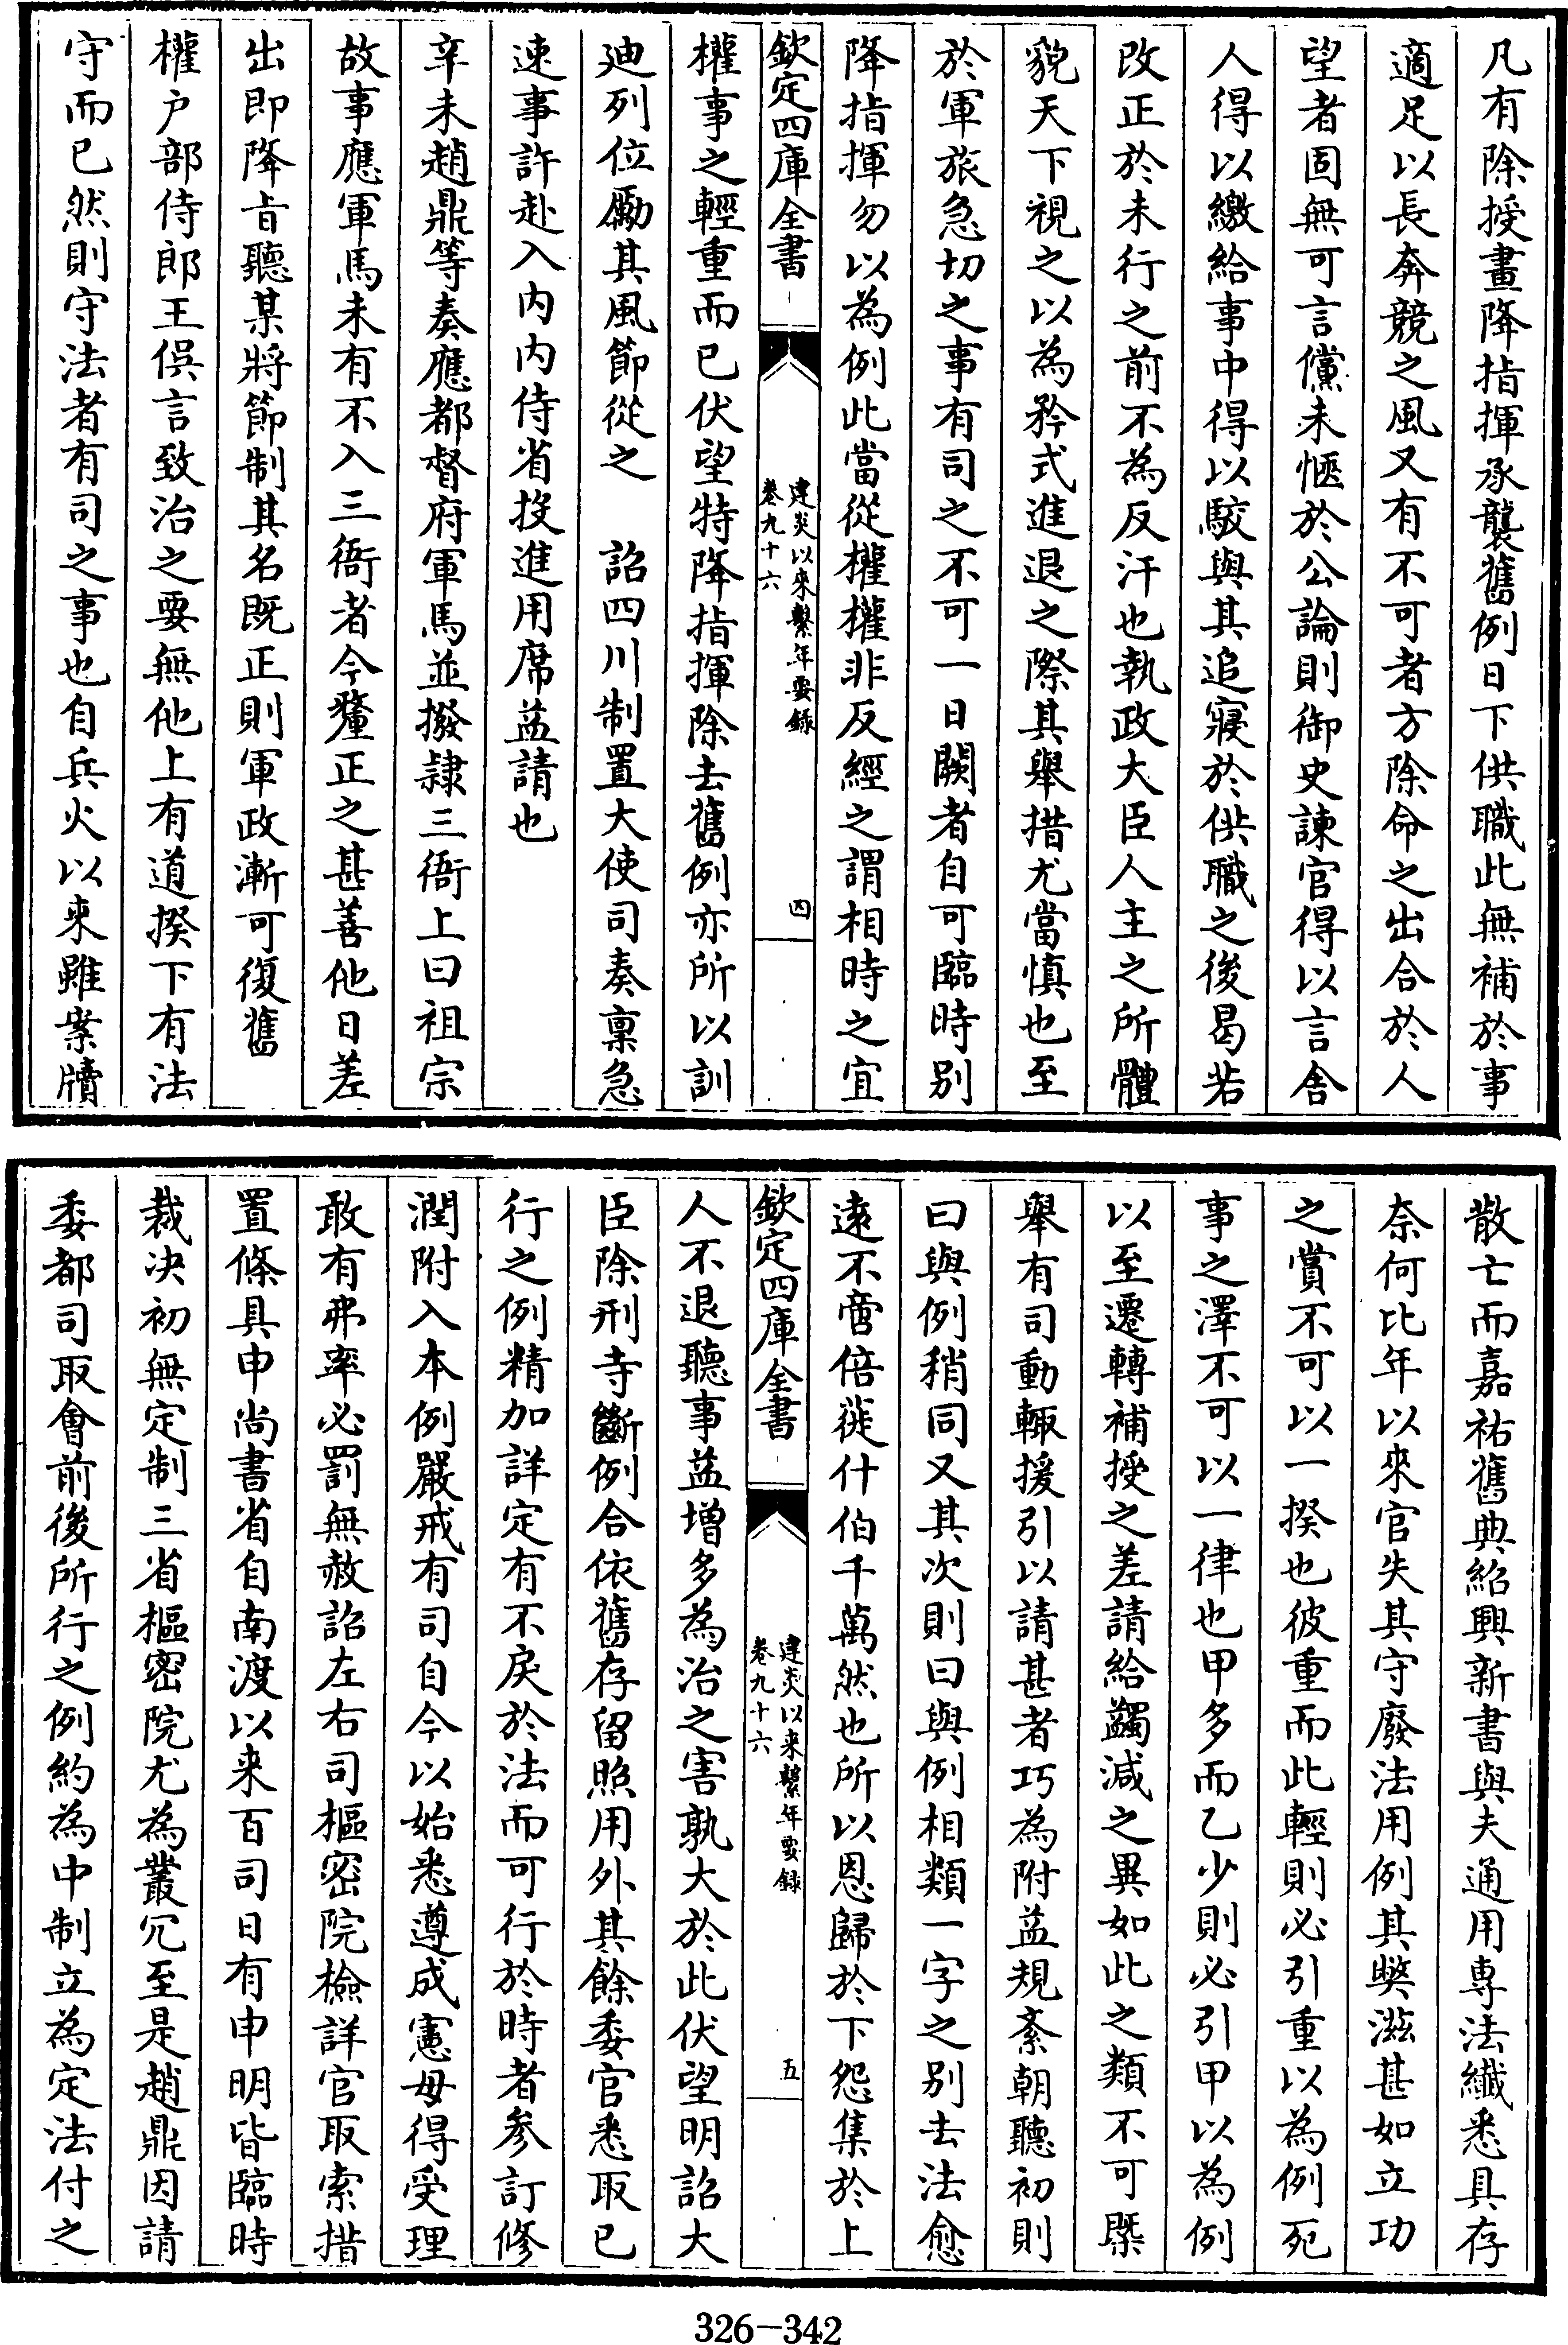 凡有除授畫降指揮承襲舊例日下供職此無補於事
適足以長奔競之風又有不可者方除命之出合於人
望者固無可言儻未愜於公論則御史諫官得以言舍
人得以繳給事中得以駮與其追寢於供職之後曷若
改正於未行之前不為反汗也執政大臣人主之所體
貌天下視之以為矜式進退之際其舉措尤當慎也至
於軍旅急切之事有司之不可一日闕者自可臨時别
降指揮勿以為例此當從權權非反經之謂相時之宜
欽定四庫全書
建炎以來繫年要錄
卷九十六
四
權事之輕重而已伏望特降指揮除去舊例亦所以訓
廸列位勵其風節從之　詔四川制置大使司奏稟急
速事許赴入内内侍省投進用席益請也
辛未趙鼎等奏應都督府軍馬並撥隸三衙上曰祖宗
故事應軍馬未有不入三衙者今釐正之甚善他日差
出即降旨聽某將節制其名既正則軍政漸可復舊
權户部侍郎王俁言致治之要無他上有道揆下有法
守而已然則守法者有司之事也自兵火以來雖案牘
散亡而嘉祐舊典紹興新書與夫通用專法纖悉具存
奈何比年以來官失其守廢法用例其獘滋甚如立功
之賞不可以一揆也彼重而此輕則必引重以為例死
事之澤不可以一律也甲多而乙少則必引甲以為例
以至遷轉補授之差請給蠲減之異如此之類不可槩
舉有司動輒援引以請甚者巧為附益規紊朝聽初則
曰與例稍同又其次則曰與例相類一字之别去法愈
遠不啻倍蓰什伯千萬然也所以恩歸於下怨集於上
欽定四庫全書
建炎以來繫年要錄
卷九十六
五
人不退聽事益增多為治之害孰大於此伏望明詔大
臣除刑寺斷例合依舊存留照用外其餘委官悉取已
行之例精加詳定有不戾於法而可行於時者參訂修
潤附入本例嚴戒有司自今以始悉遵成憲毋得受理
敢有弗率必罰無赦詔左右司樞密院檢詳官取索措
置條具申尚書省自南渡以来百司日有申明皆臨時
裁决初無定制三省樞密院尤為叢冗至是趙鼎因請
委都司取會前後所行之例約為中制立為定法付之
326－342